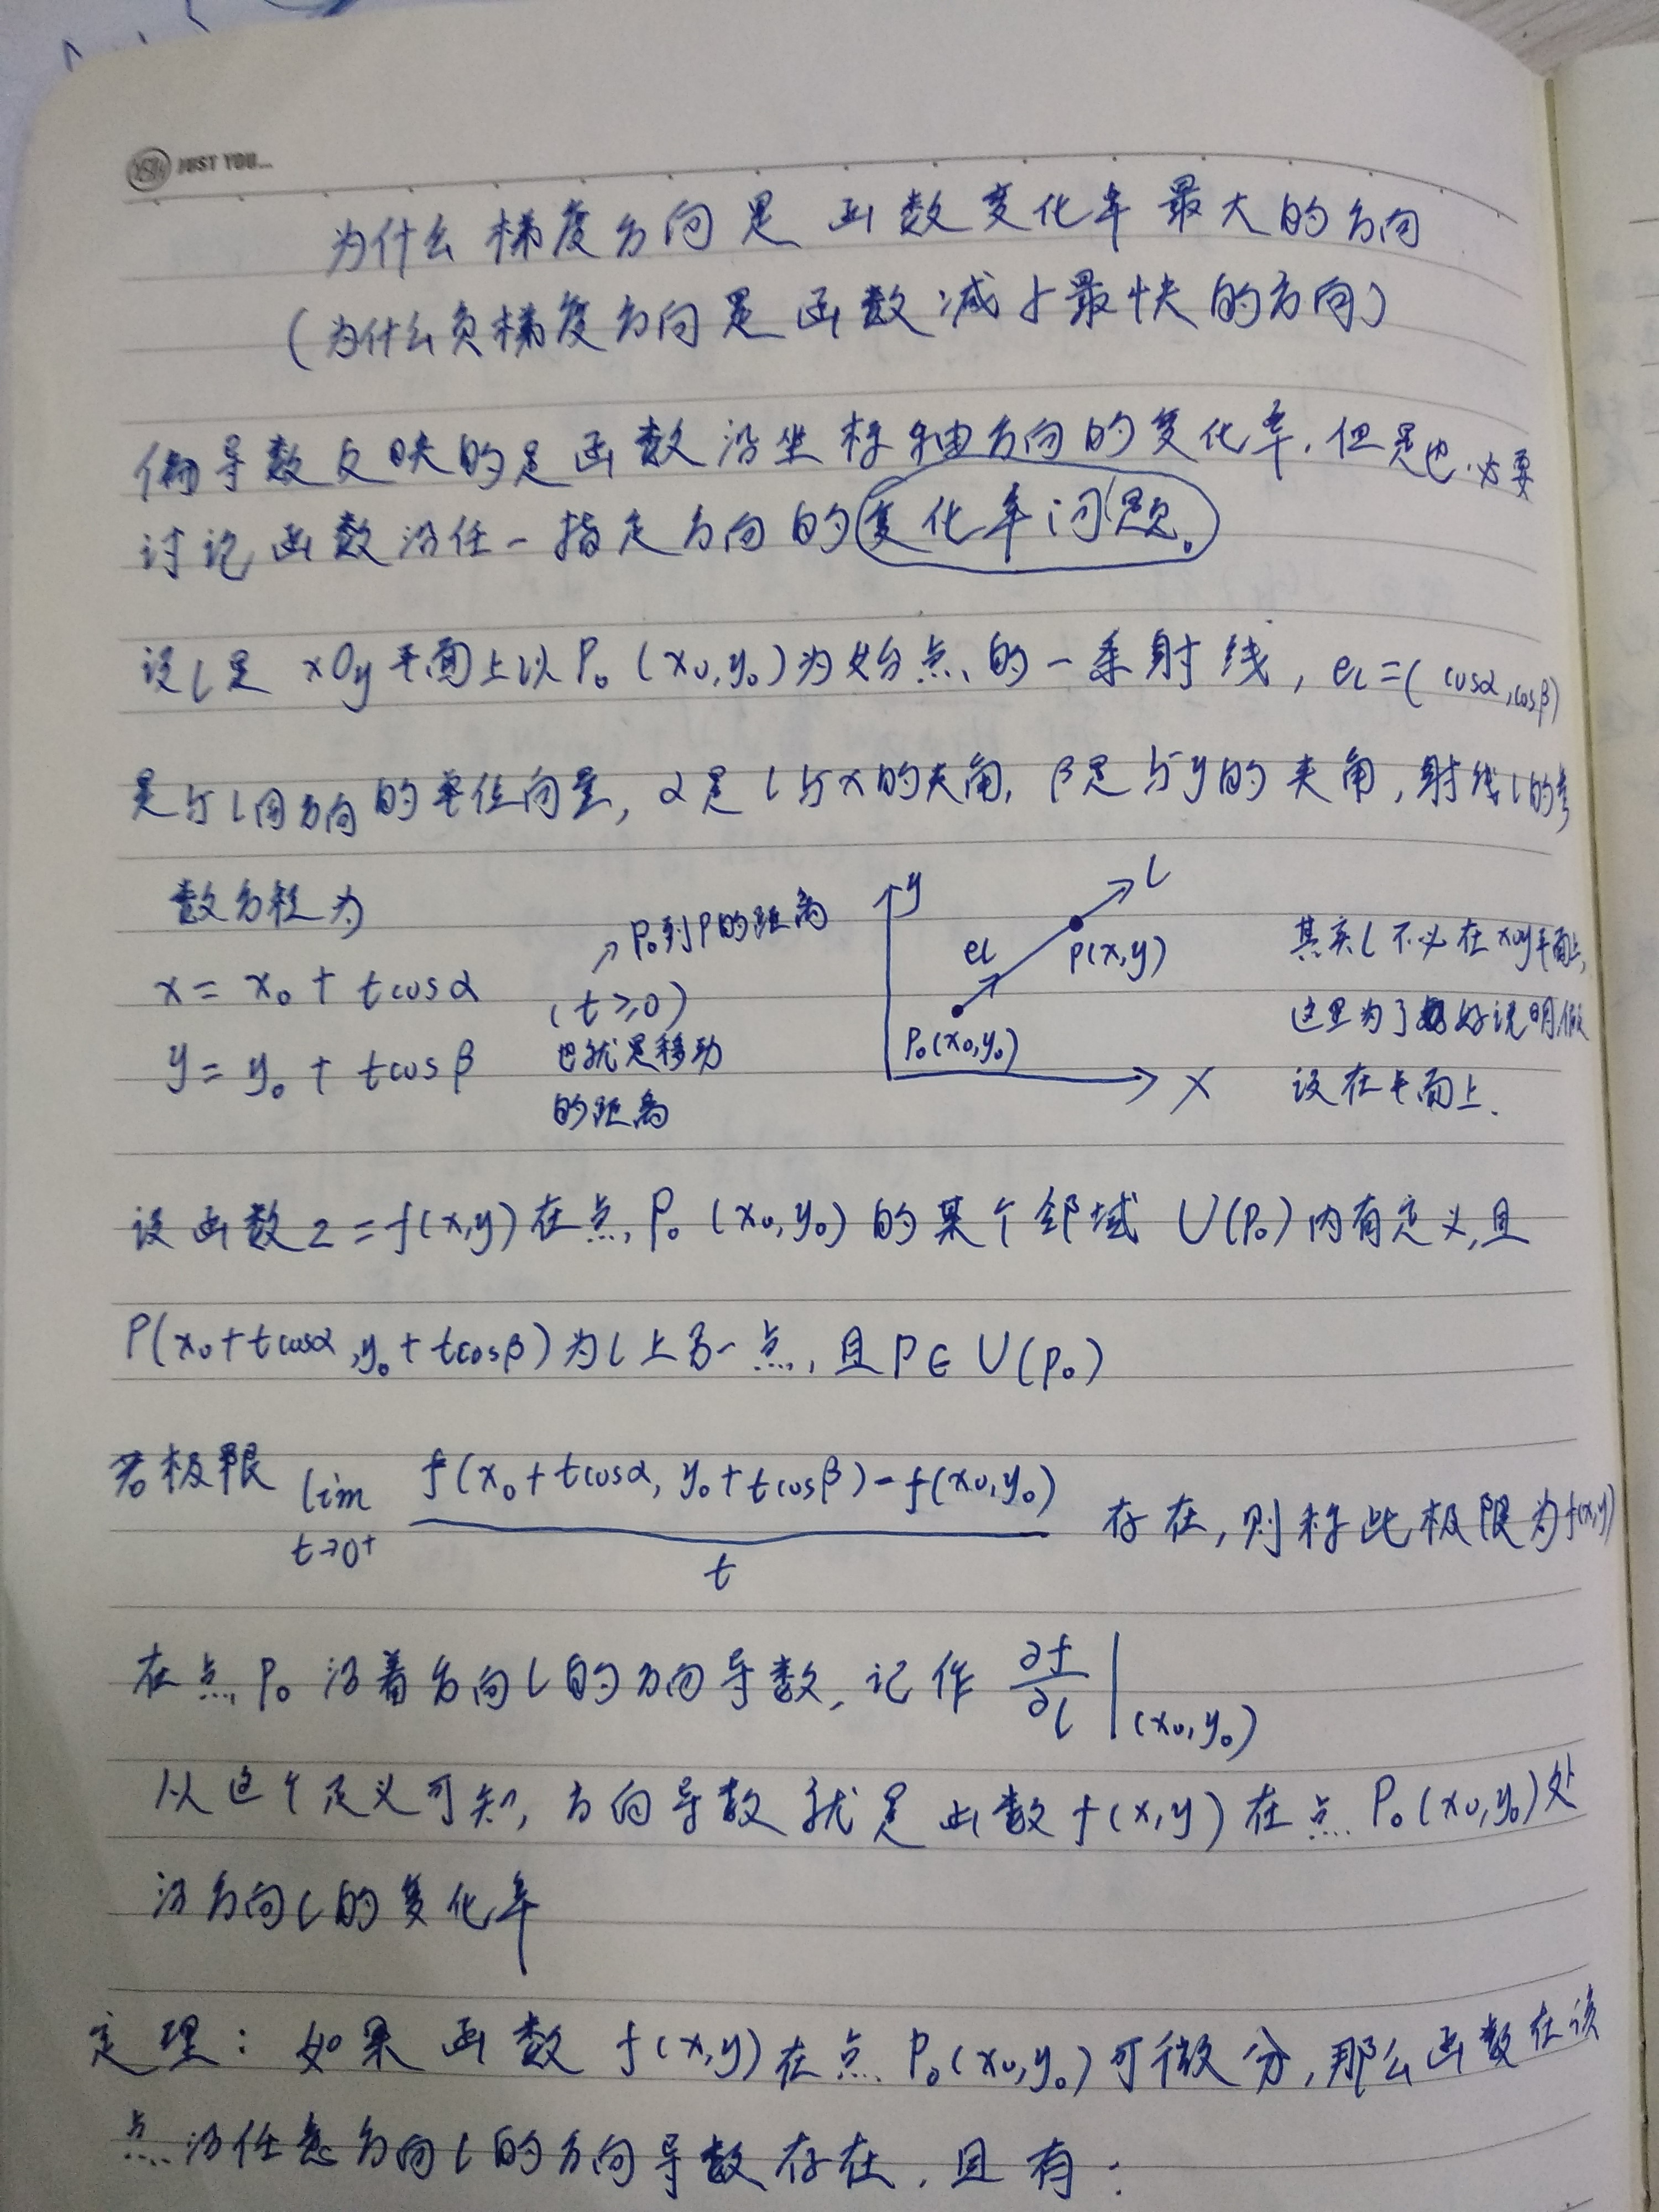 JUST YOU...
为什么梯度方向是函数变化率最大的方向
(为什么负梯度方向是函数减少最快的方向)
偏导数反映的是函数沿坐标轴方向的变化率,但是也必要
讨论函数沿任一指定方向的变化率问题。
设l是 xOy平面上以P₀(x₀,y₀)为始点的一条射线, el=(cosα,cosβ)
是与l同方向的单位向量, α是l与x的夹角, β是与y的夹角,射线l的参
数方程为
x = x₀ + tcosα
y = y₀ + tcosβ
→P₀到P的距离
(t≥0)
也就是移动
的距离
y
l
el
P(x,y)
P₀(x₀,y₀)
x
其实l不必在xoy平面上,
这里为了好说明假
设在平面上.
设函数z=f(x,y)在点P₀(x₀,y₀)的某个邻域 U(P₀)内有定义,且
P(x₀+tcosα,y₀+tcosβ)为l上另一点,且P∈U(P₀)
若极限 lim t→0⁺ f(x₀+tcosα, y₀+tcosβ)-f(x₀,y₀) / t 存在,则称此极限为f(x,y)
在点P₀沿着方向l的方向导数,记作 ∂f/∂l |(x₀,y₀)
从这个定义可知,方向导数就是函数f(x,y)在点P₀(x₀,y₀)处
沿方向l的变化率
定理:如果函数f(x,y)在点P₀(x₀,y₀)可微分,那么函数在该
点沿任意方向l的方向导数存在,且有: